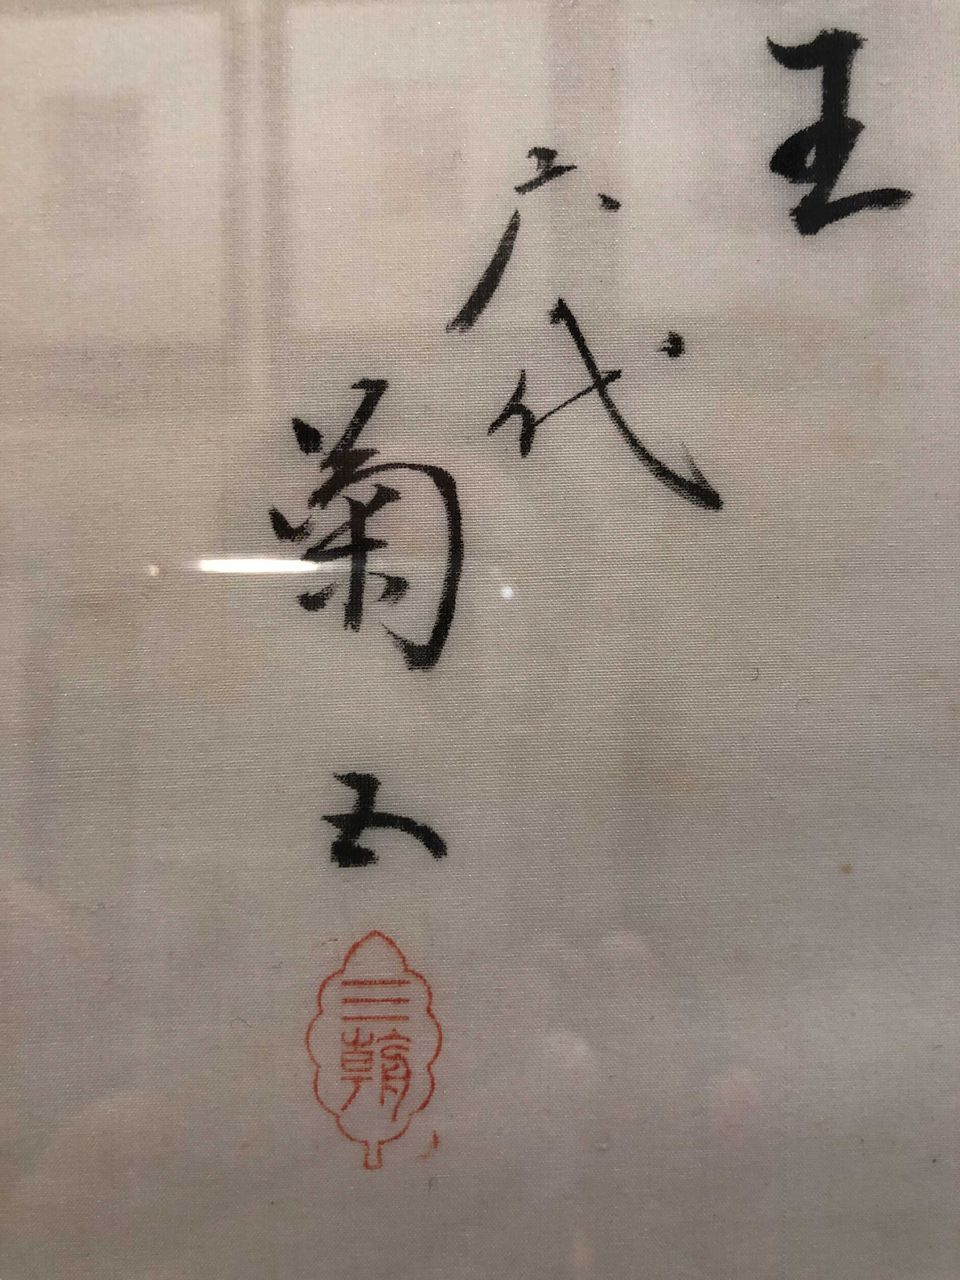 王
六代
菊五
三朝